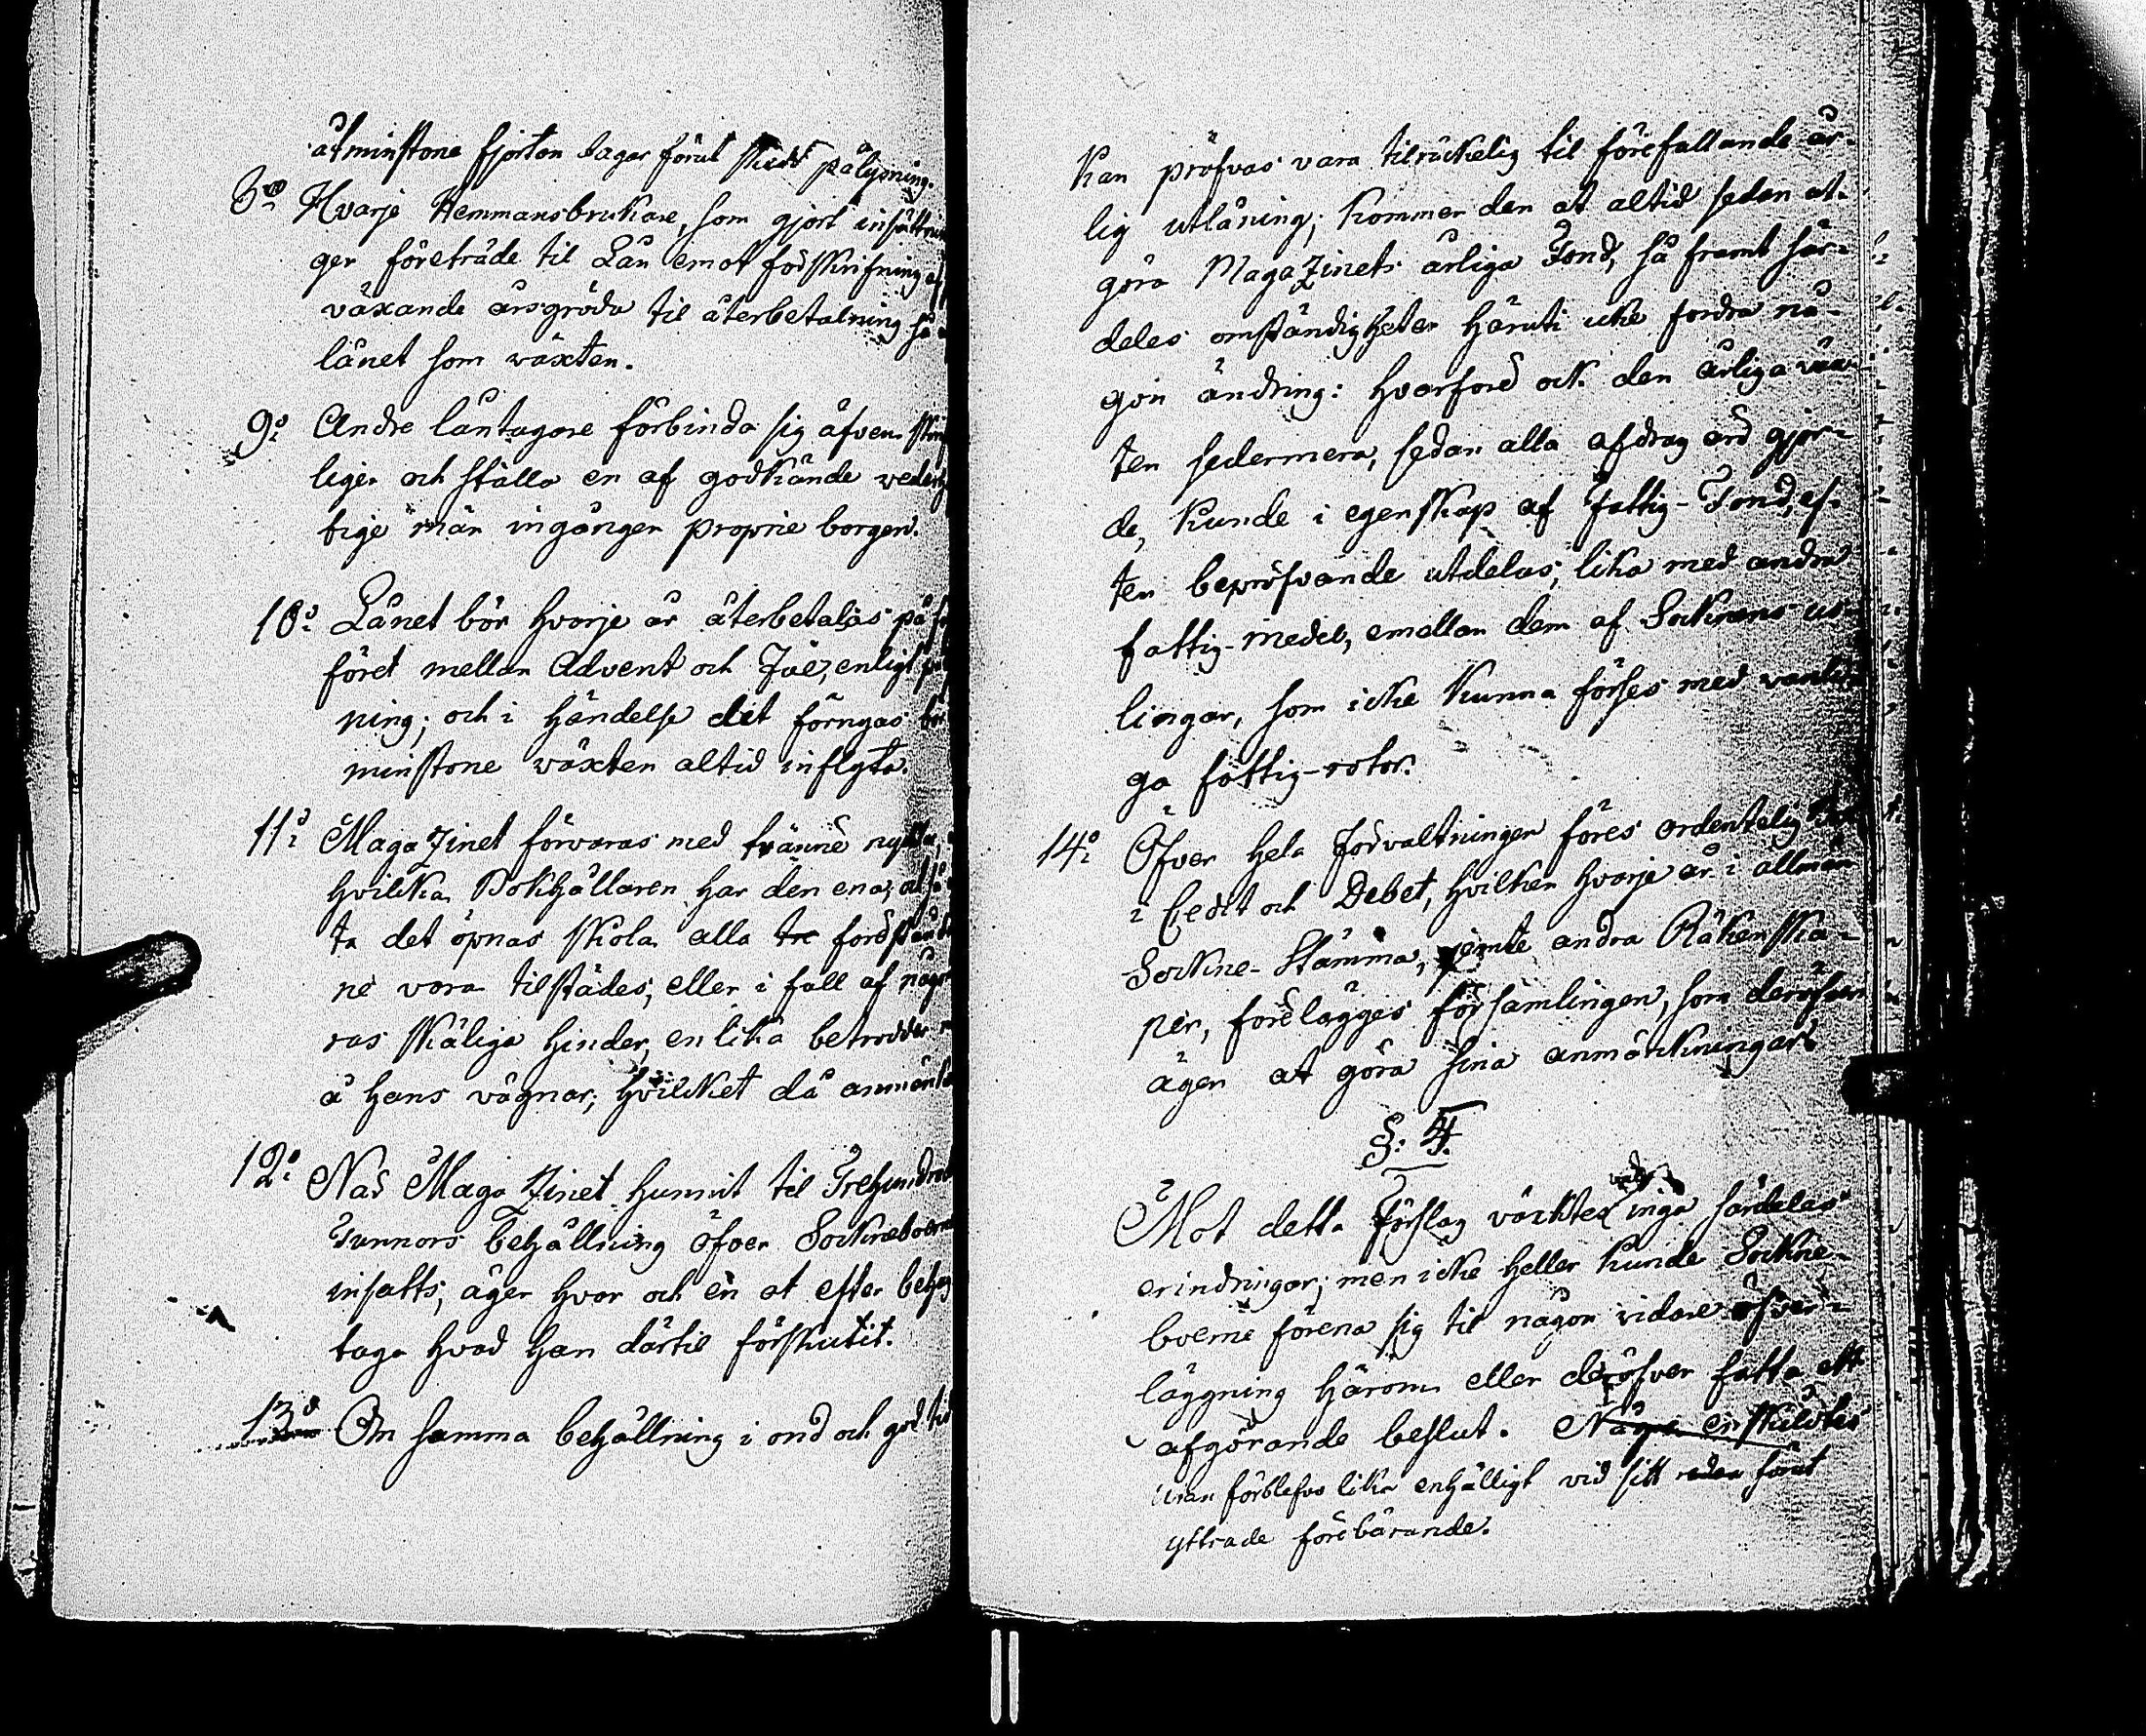 åtminstone fjorton dagar förut skedd pålysning.
8o Hvarje Hemmansbrukare, som gjort insättnin
ger företräde til Lån emot förskrifning af
växande årsgröda til återbetalning så
lånet som växten.
9o Andre låntagare förbinda sig äfven
liger och ställa en af godkände
tige män ingången proprie borgen.
10o Lånet bör hvarje år återbetalas på
föret mellan Advent och Jul, enligt
ning; och i händelse det förnyas bör
minstone växten altid inflyta.
11o Magazinet förvaras med tvänne
hvilka Bokhållaren har den ena;
ta det öpnas skola alla tre
ne vara tilstädes, eller i fall af någo
ras skäliga hinder, en lika betrodder
å hans vägnar; hvilcket då
12o När Magazinet hunnit til Trehundra
Tunnors behållning öfver Sockneboer
insatts; äger hvar och en at efter behag
taga hvad han därtil förskutit.
13o Om samma behållning i ond och god tid
kan pröfvas vara tilräckelig til förefallande år-
lig utlåning; kommer den at altid sedan ut-
göra Magazinets årliga Fond, så framt sär-
deles omständigheter häruti icke fordra nå-
gon ändring: hvarföre ock den årliga väx-
ten sedermera, sedan alla afdrag äro gjor-
de, kunde i egenskap af Fattig-Fond, ef-
ter bepröfvande utdelas, lika med andra
fattig-medel, emellan dem af Socknens us-
lingar, som icke kunna förses med vanli-
ga fattig-rotor.
14o Öfver hela förvaltningen föres ordentelig
i Credit och Debet, hvilken hvarje år i allmän
Sockne-Stämma, jemte andra Räkenska-
per, förelägges församlingen, som deröfver
ägen at göra sina anmärkningar.
§: 4.
Mot detta Förslag väcktes väl inga särdeles
erindringar; men icke heller kunde Sockne-
boerne förena sig til någon vidare öfver-
läggning härom eller deröfver fatta ett
afgörande beslut. Några enskildtes
utan förblefvo lika enhälligt vid sitt redan förut
yttrade förebärande.